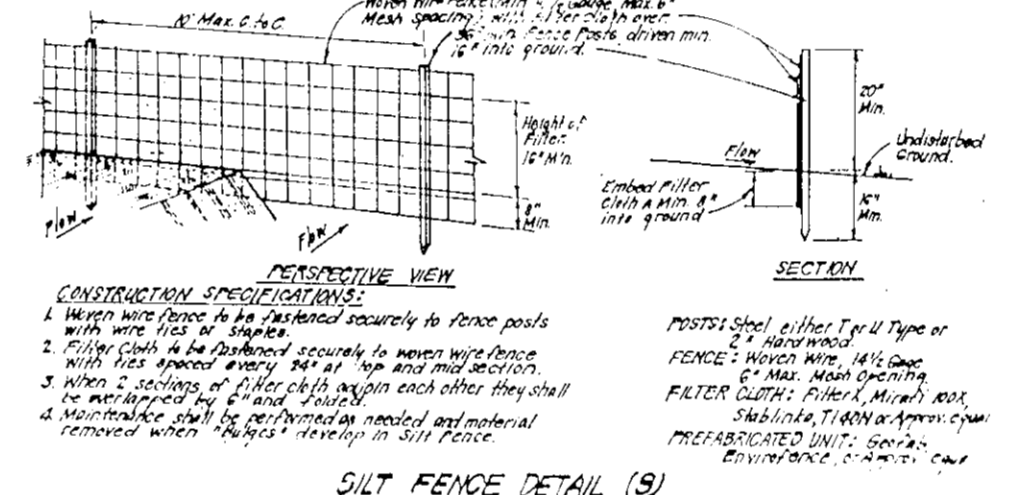 Woven wire Fence (Min. 14½ Gauge, Max. 6"
Mesh spacing) with Filter Cloth over.
10' Max. C. to C.
36" Min. Fence Posts driven min.
16" into ground.
Height of
Filter
16" Min.
8"
Min.
Flow
Flow
PERSPECTIVE VIEW
20"
Min.
Undisturbed
Ground.
Flow
Embed Filter
Cloth A Min. 8"
into ground
16"
Min.
SECTION
CONSTRUCTION SPECIFICATIONS:
1. Woven wire fence to be fastened securely to fence posts
with wire ties or staples.
2. Filter Cloth to be fastened securely to woven wire fence
with ties spaced every 24" at top and mid section.
3. When 2 sections of filter cloth adjoin each other they shall
be overlapped by 6" and folded.
4. Maintenance shall be performed as needed and material
removed when "Bulges" develop in Silt Fence.
POSTS: Steel either T or U Type or
2" Hardwood.
FENCE: Woven Wire, 14½ Gage
6" Max. Mesh Opening
FILTER CLOTH: Filter X, Mirafi 100X,
Stablinka, T140N or Approv. equal
PREFABRICATED UNIT: Geofab,
Envirofence, or Approv. equal
SILT FENCE DETAIL (S)